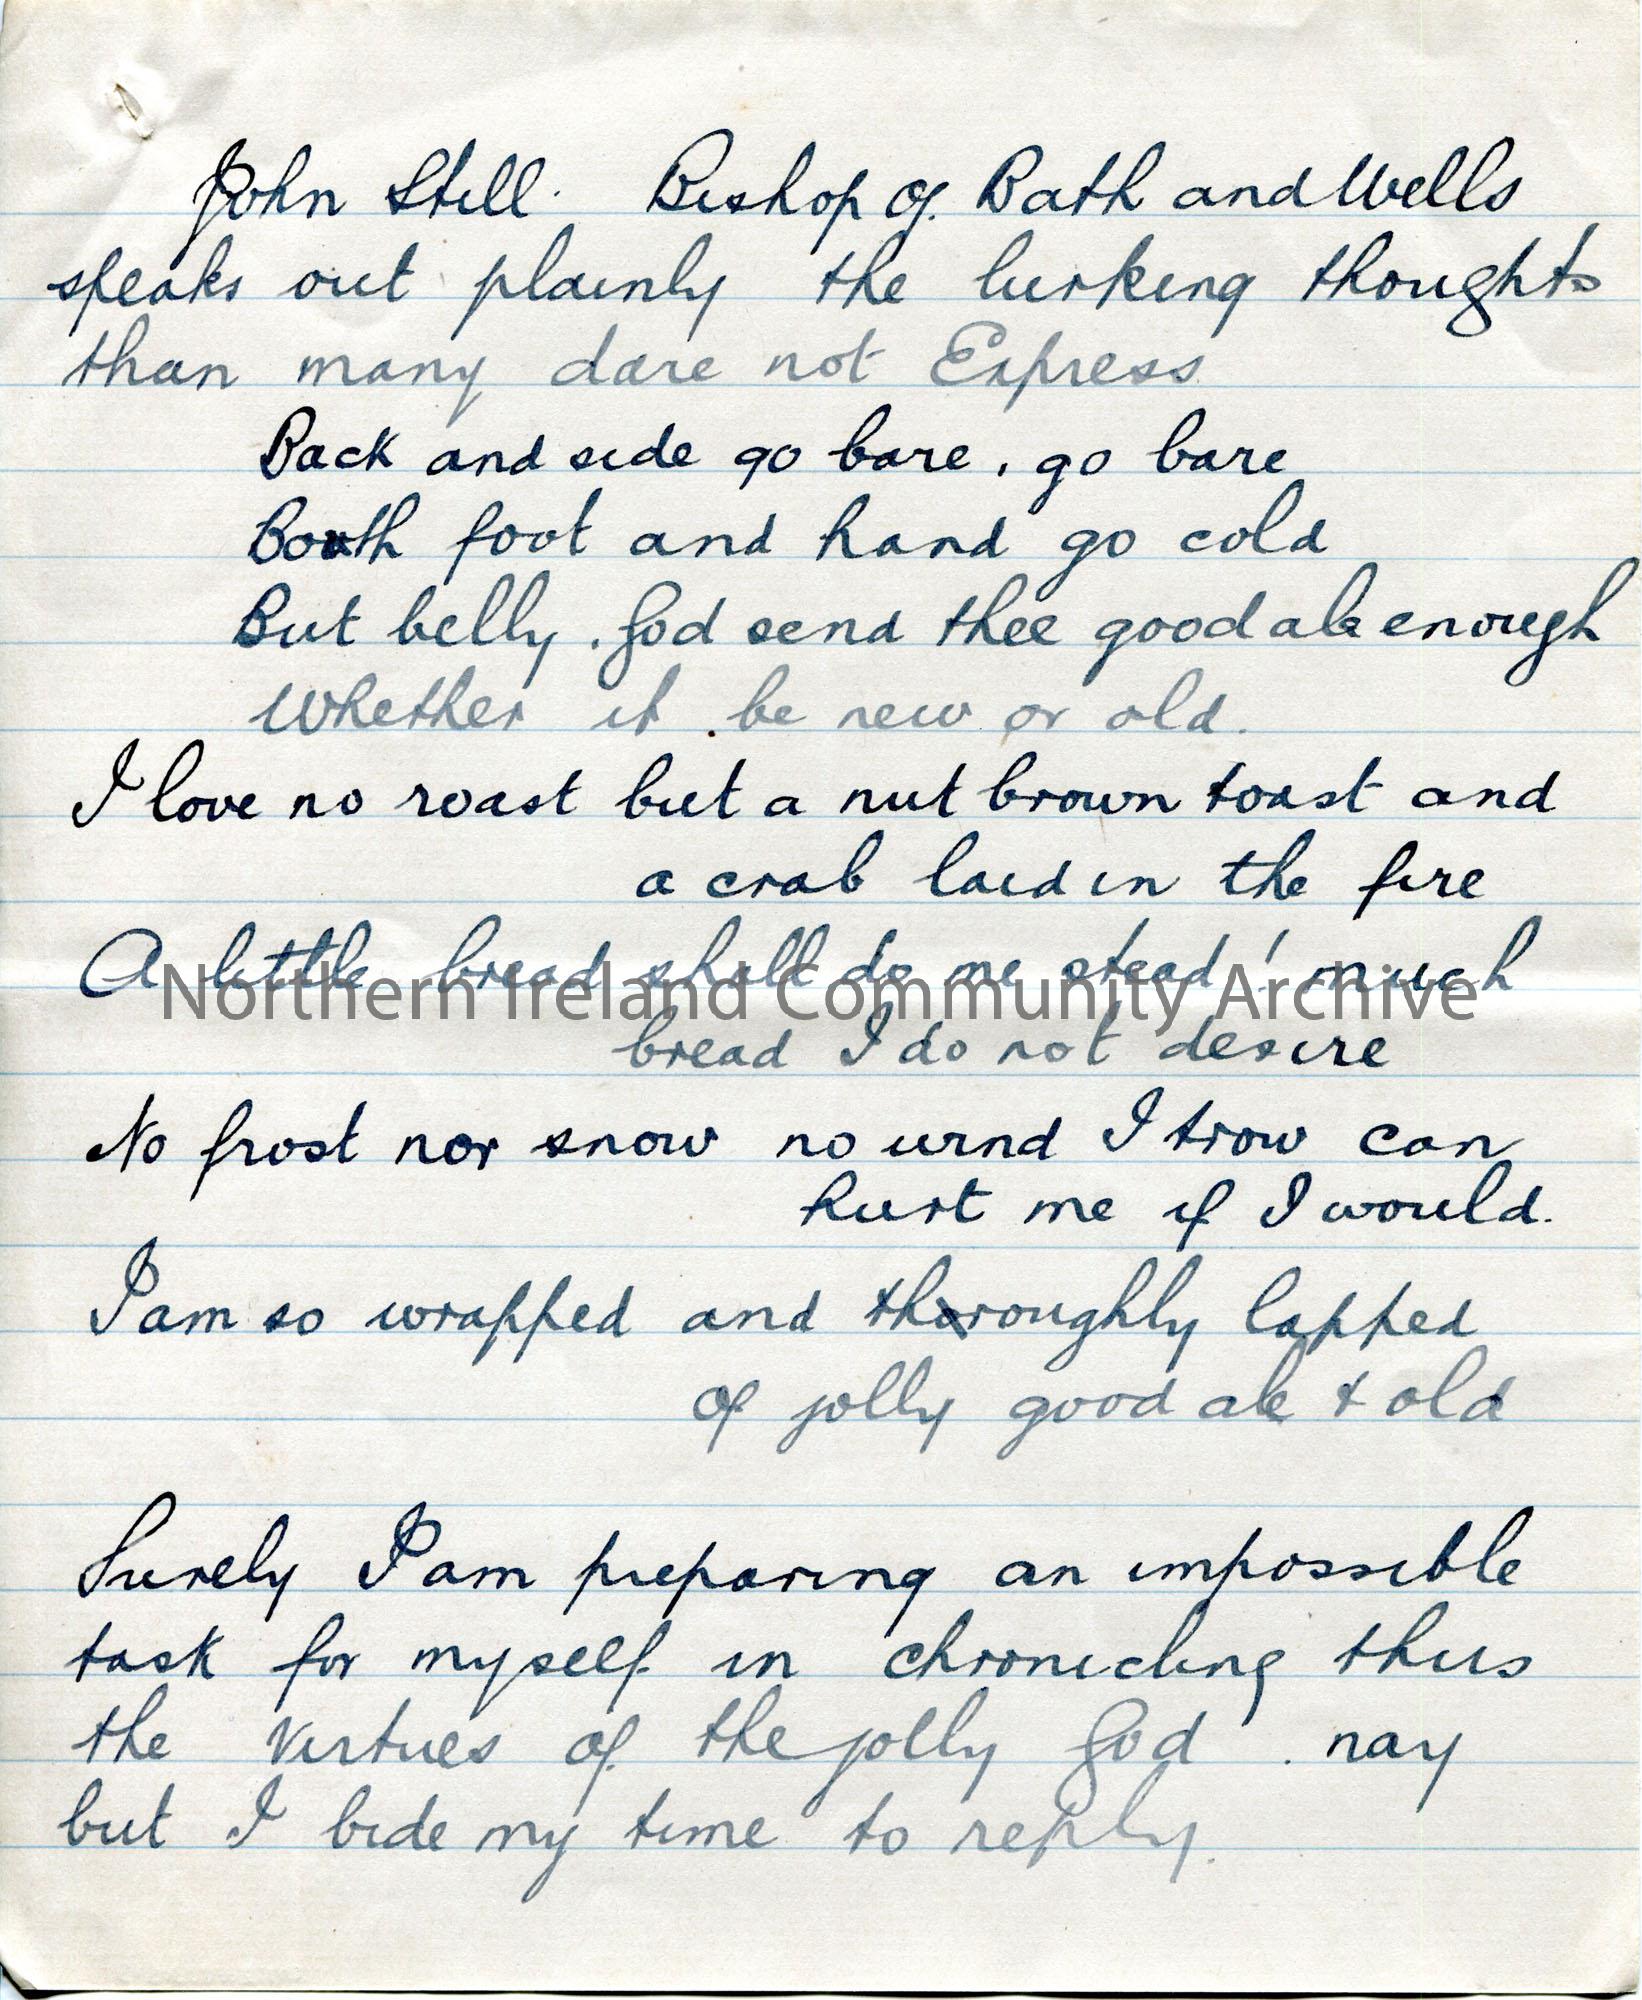 John Still. Bishop of Bath and Wells
speaks out plainly the lurking thoughts
than many dare not Express
Back and side go bare, go bare
Booth foot and hand go cold
But belly, God send thee good ale enough
Whether it be new or old.
I love no roast but a nut brown toast and
a crab laid in the fire
A little bread shall do me stead! much
Northern Ireland Community Archive
bread I do not desire
No frost nor snow no wind I trow can
hurt me if I would.
I am so wrapped and thoroughly lapped
of jolly good ale & old
Surely I am preparing an impossible
task for myself in chronicling thus
the virtues of the jolly God. nay
but I bide my time to reply.